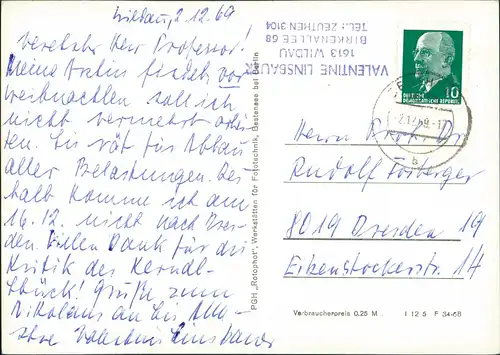 Wildau, 2.12.69
Verehrter Herr Professor!
Meine Ärztin findet, vor
Weihnachten soll ich
nicht vermehrt arbei-
ten. Sie rät für Abbau
aller Belastungen. Des-
halb komme ich am
16.12. nicht nach Dres-
den. Vielen Dank für die
Kritik des
Stück! Grüße zum
Nikolaus an Sie alle
Ihre Valentine Linsbauer
VALENTINE LINSBAUER
1613 WILDAU
BIRKENALLEE 68
TEL.: ZEUTHEN 3104
10
DEUTSCHE
DEMOKRATISCHE REPUBLIK
-2.12.69-17
b
Herrn Prof. Dr.
Rudolf Förberger
8019 Dresden 19
Eibenstockerstr. 14
PGH „Rotophot“, Werkstätten für Fototechnik, Bestensee bei Berlin
Verbraucherpreis 0,25 M I 12 5 F 34-68